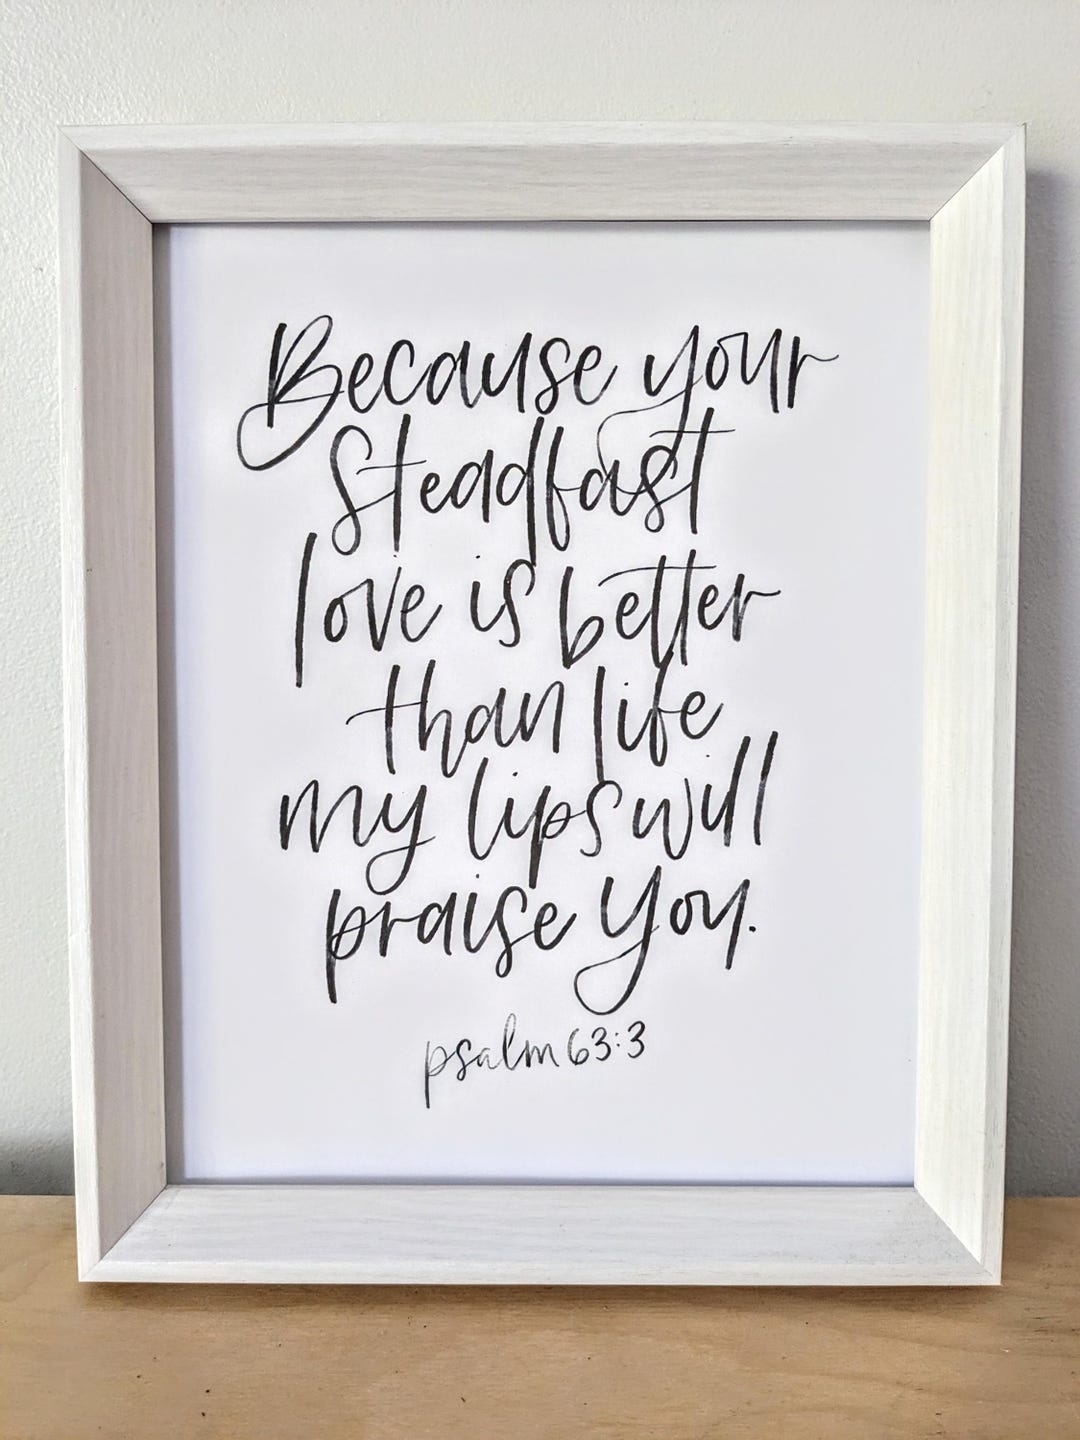 Because your
steadfast
love is better
than life
my lips will
praise You.
psalm 63:3